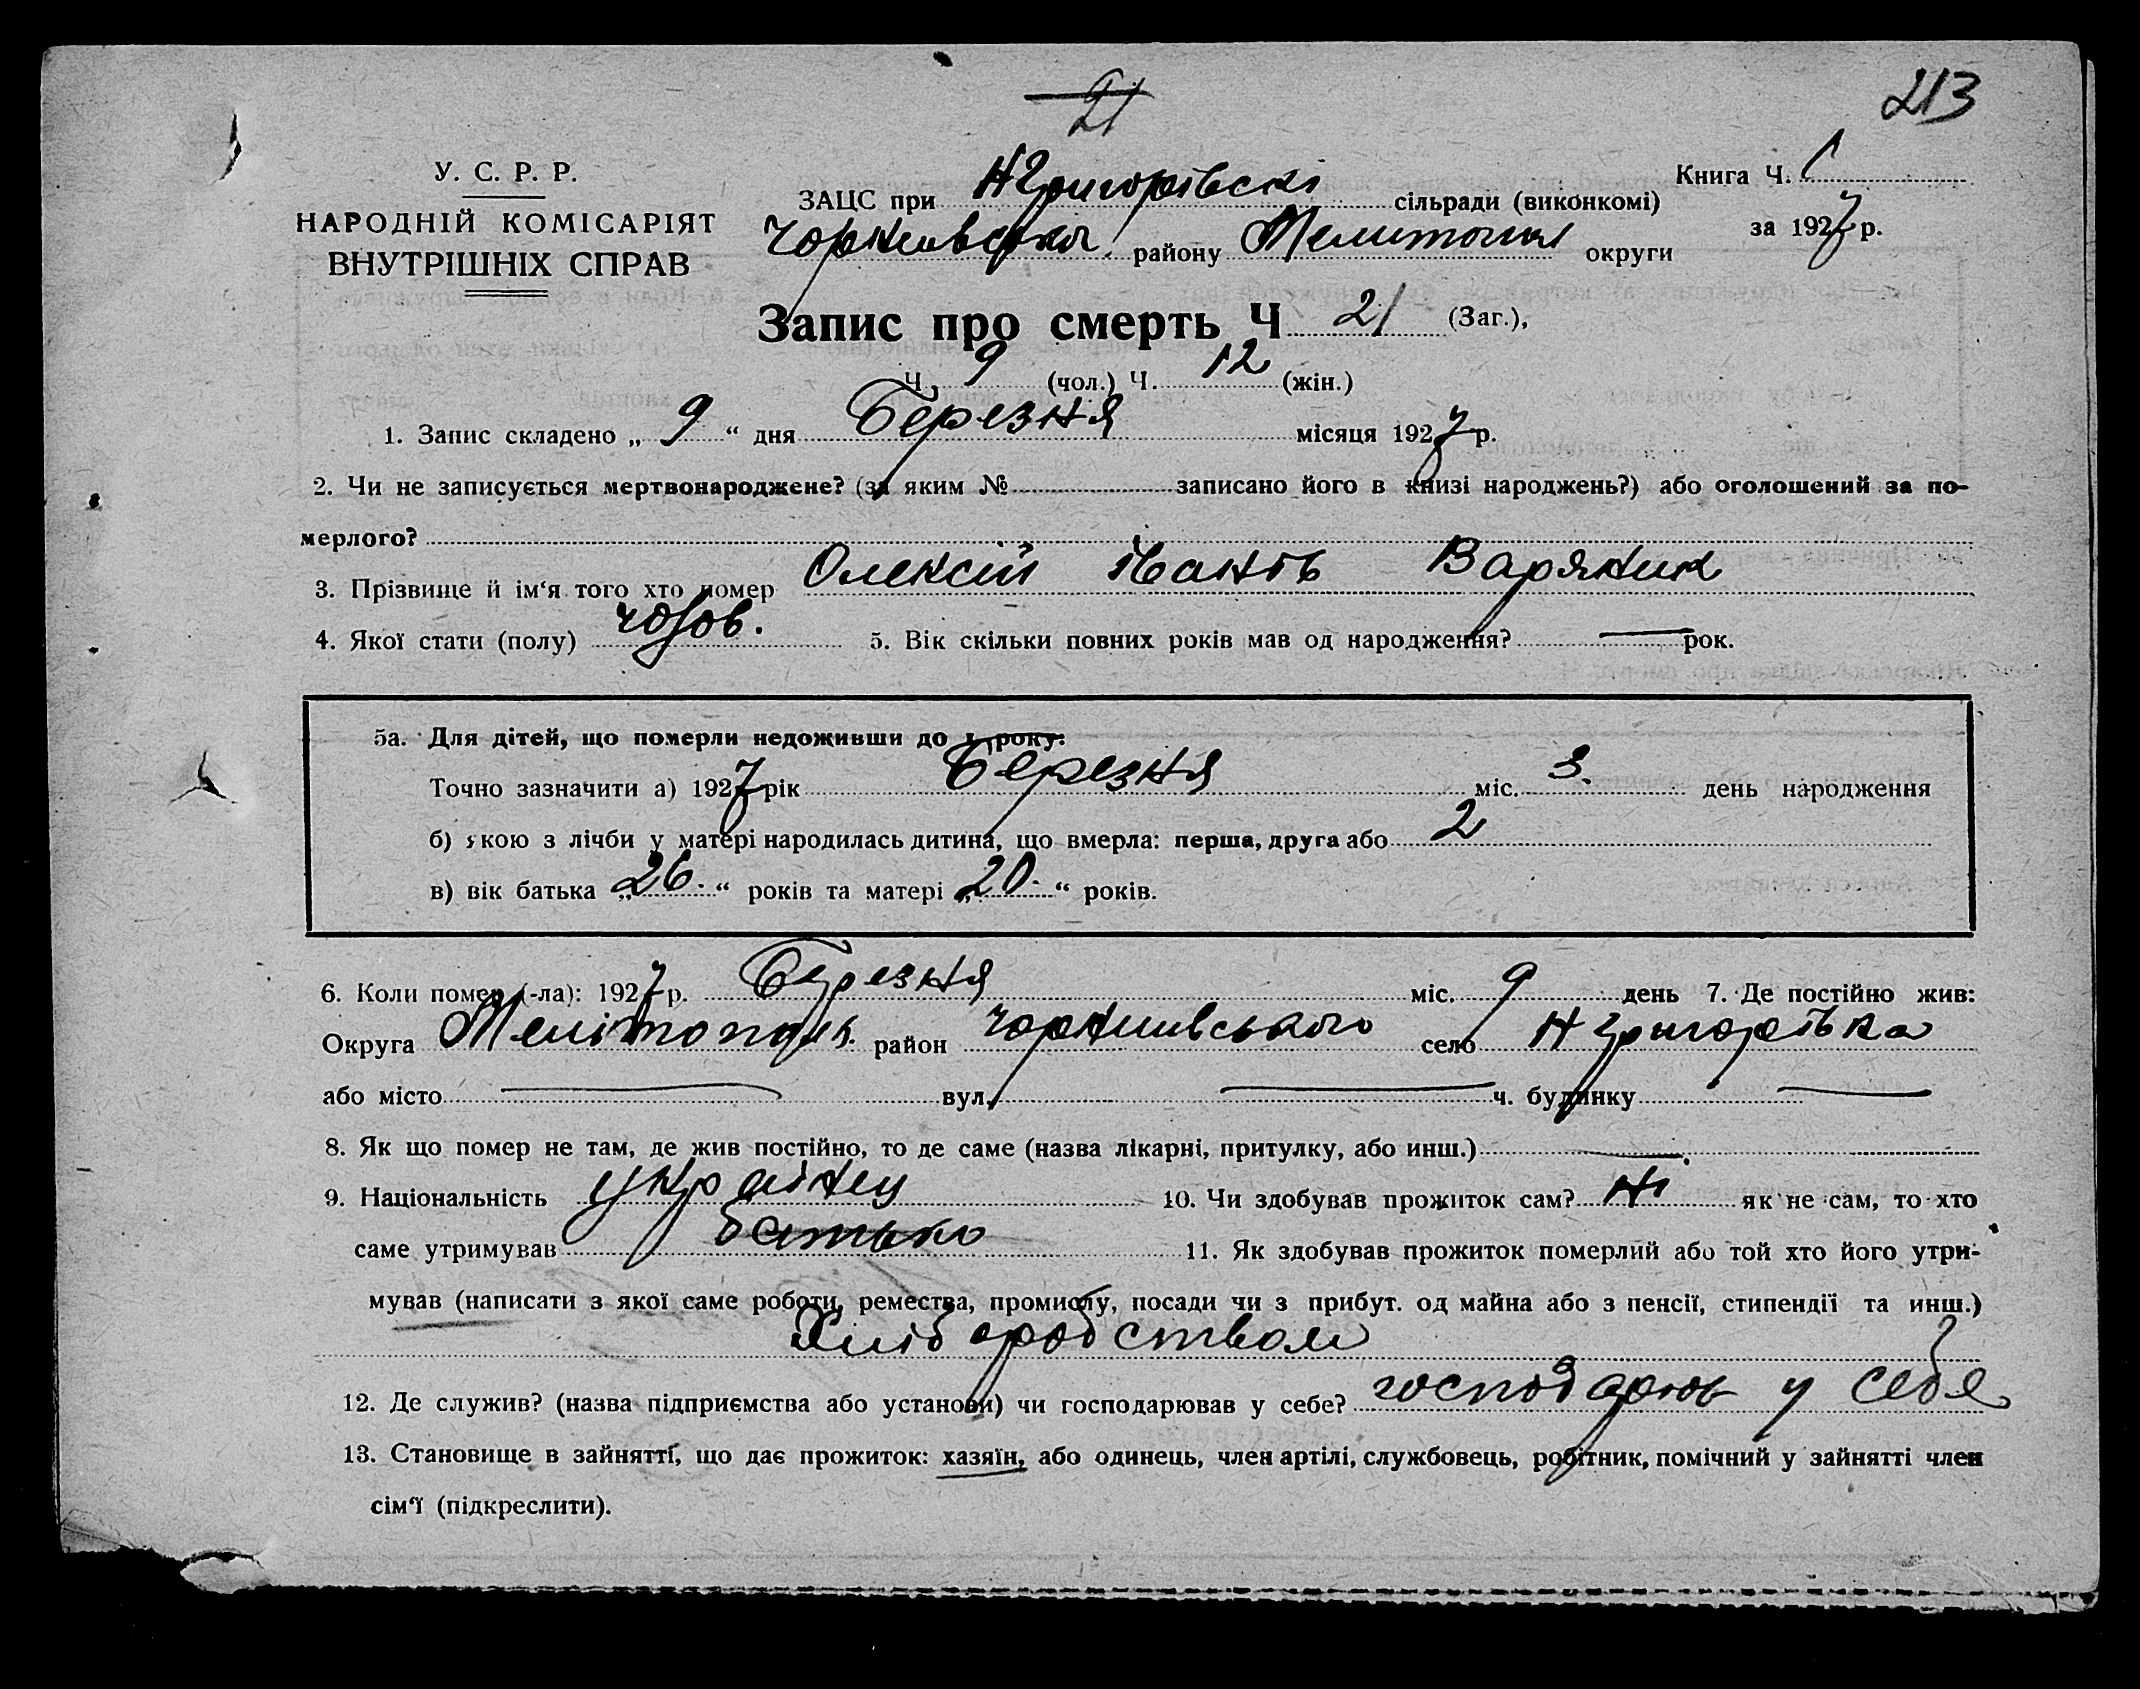 21
213
У. С. Р. Р.
НАРОДНІЙ КОМІСАРІЯТ
ВНУТРІШНІХ СПРАВ
ЗАЦС при Н Григорівскі сільради (виконкомі)
Книга Ч. 1
районy Мелитопил округи
за 1927 р.
Запис про смерть Ч 21 (Заг.),
Ч. 9 (чол.) Ч. 12 (жін.)
1. Запис складено „ 9 “ дня Березня місяця 1927 р.
2. Чи не записується мертвонароджене? (за яким № записано його в книзі народжень?) або оголошений за по-
мерлого?
3. Прізвище й ім‘я того хто помер Олексій Варяник
4. Якої стати (полу) чолов. 5. Вік скільки повних років мав од народження? — рок.
5а. Для дітей, що померли недоживши до 1 року:
Точно зазначити а) 1927 рік Березня міс. 3. день народження
б) якою з лічби у матері народилась дитина, що вмерла: перша, друга або 2
в) вік батька „ 26. “ років та матері „ 20. “ років.
6. Коли помер (-ла): 1927 р. Березня міс. 9 день 7. Де постійно жив:
Округа район село Н Григорівка
або місто — вул. — ч. будинку —
8. Як що помер не там, де жив постійно, то де саме (назва лікарні, притулку, або инш.) —
9. Національність українец 10. Чи здобував прожиток сам? Ні як не сам, то хто
саме утримував батько 11. Як здобував прожиток померлий або той хто його утри-
мував (написати з якої саме роботи, ремества, промислу, посади чи з прибут. од майна або з пенсії, стипендії та инш.)
Хлібородством
12. Де служив? (назва підприємства або установи) чи господарював у себе? господарюв у себе
13. Становище в зайнятті, що дає прожиток: хазяїн, або одинець, член артілі, службовець, робітник, помічний у зайнятті член
сім‘ї (підкреслити).